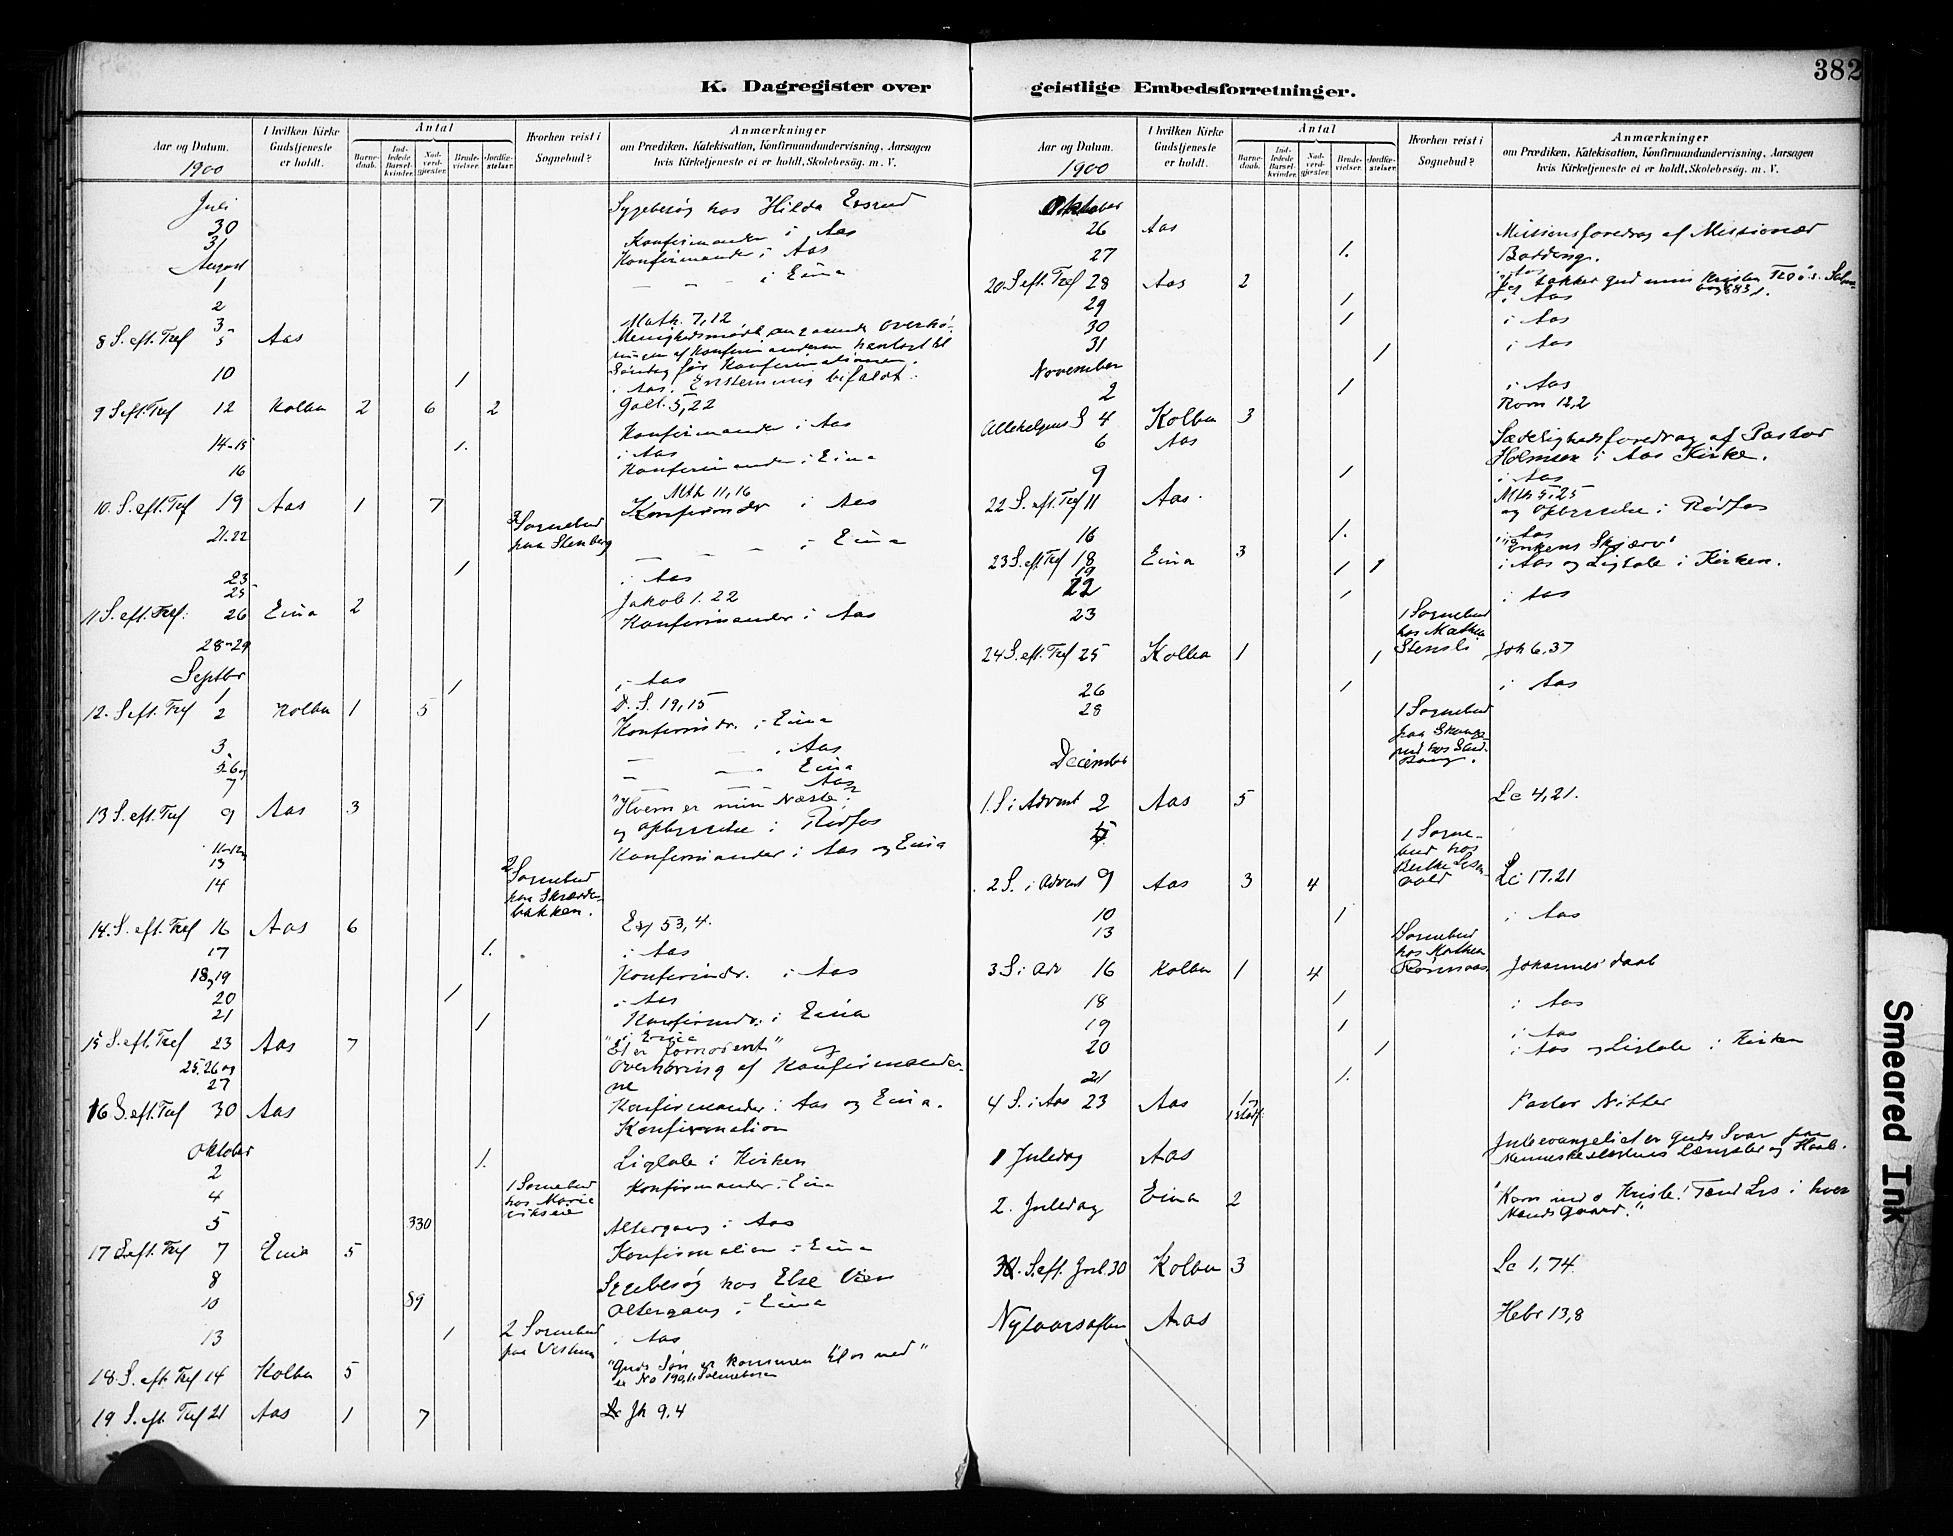 382
K. Dagregister over geistlige Embedsforretninger.
Aar og Datum.
1900
I hvilken Kirke Gudstjeneste er holdt.
Antal
Barnedaab.
Indledede Barselkvinder.
Nadverdgjester.
Brudevielser.
Jordfæstelser.
Hvorhen reist i Sognebud?
Anmærkninger
om Prædiken, Katekisation, Konfirmandundervisning, Aarsagen
hvis Kirketjeneste ei er holdt, Skolebesøg. m. V.
Juli
30 Sygebesøg hos Hilda
31 Konfirmander i Aas
August Konfirmander i Aas
1 — — — i Eina
2
3
8 S. eft. Tref 5 Aas Math. 7,12
Menighedsmøde
af Konfirmanderne henlagt til
Søndag før Konfirmationen.
10 1 i Aas. Enstemmig bifaldt.
9 S. eft. Tref 12 Kolbu 2 6 2 Galt. 5,22
Konfirmander i Aas
14-15 1. i Aas
16 Konfirmander i Eina
10. S. eft. Tref 19 Aas 1 7 Mth 11,16
Konfirmdr i Aas
21-22 3 Sognebud paa Stenberg — — — i Eina
23 1 i Aas
25
11 S. eft. Tref: 26 Eina 2 Jakob 1. 22
Konfirmander i Aas
28-29
Septbr
1 1 i Aas
12. S. eft. Tref 2 Kolbu 1 5 D. S. 19,15
Konfirmdr. i Eina
3. — — i Aas
5. 6 og — — Eina
7 — — Aas
13 S. eft. Tref 9 Aas 3 "Hvem er min Næste?"
og Opbyggelse i Rødfos
13 Konfirmander i Aas og Eina
14 2 Sognebud paa Skrædderbakken.
14. S. eft. Tref 16 Aas 6 Esj 53,4.
17 1. i Aas
18 og 19 Konfirmdr. i Aas
20 1 i Aas
21 1 Konfirmdr. i Eina
i Eina
15 S. eft. Tref 23 Aas 7 "Et er fornødent" og
25. 26 og Overhøring af Konfirmanderne
27
16 S. eft. Tref 30 Aas Konfirmander i Aas og Eina.
Konfirmation
Oktober
2 1. Ligtale i Kirken
4 1 Sognebud hos Marie Konfirmander i Eina
5 330 Altergang i Aas
17 S. eft. Tref 7 Eina 5 Konfirmation i Eina
8 Sygebesøg hos Else
10 89 Altergang i Eina
13 1 2 Sognebud paa i Aas
18. S. eft. Tref 14 Kolbu 5 "Guds Søn er kommen til os ned"
se No 190, i Salmebogen
19 S. eft. Tref 21 Aas 1 7 Jh 9.4
Aar og Datum.
1900
I hvilken Kirke Gudstjeneste er holdt.
Antal
Barnedaab.
Indledede Barselkvinder.
Nadverdgjester.
Brudevielser.
Jordfæstelser.
Hvorhen reist i Sognebud?
Anmærkninger
om Prædiken, Katekisation, Konfirmandundervisning, Aarsagen
hvis Kirketjeneste ei er holdt, Skolebesøg. m. V.
Oktober
26 Aas Missionsforedrag af Missionær
27 1.
i Aas
20. S. eft. Tref 28 Aas 2 Jeg takker Gud min
29 1 i Aas
30 1 i Aas
31 1 i Aas
November
2 1 i Aas
Allehelgens S 4 Kolbu 3 Rom 12,2
6 Aas Sædelighedsforedrag af Pastor
Holmsen i Aas Kirke.
9 1 i Aas
22 S. eft. Tref 11 Aas. Mth 5,25
og Opbyggelse i Rødfos
16 1. i Aas
23 S. eft. Tref 18 Eina 3 "Enkens Skjærv"
19 1 1 i Aas og Ligtale i Kirken.
22 1 i Aas
23 1 Sognebud hos Mathea Stensli
24 S. eft. Tref 25 Kolbu 1 1 Joh 6,37
26 1 i Aas
28 1 Sognebud paa
December
1. S i Advent 2 Aas 5 Lc 4,21.
1 Sognebud hos
2 S. i Advent 9 Aas 3 4 Lc 17.21
10 1 i Aas
13 1 Sognebud hos Mathea
3 S i Adv 16 Kolbu 1 4 Johannes' daab
18 1 i Aas
19 1 i Aas
20 1 i Aas og Ligtale i Kirken
21 1.
4 S. i Aas 23 Aas Pastor Nitter
1 Juledag Aas Juleevangeliet er Guds Svar paa
Menneskeslægtens Længsler og Haab.
2. Juledag Eina 2 "Kom ind o Krist! Tænd Lys i hver
Mands Gaard."
S. eft. Jul. 30 Kolbu 3 Lc 1,74.
Nytaarsaften Aas Hebr 13,8
Smeared Ink